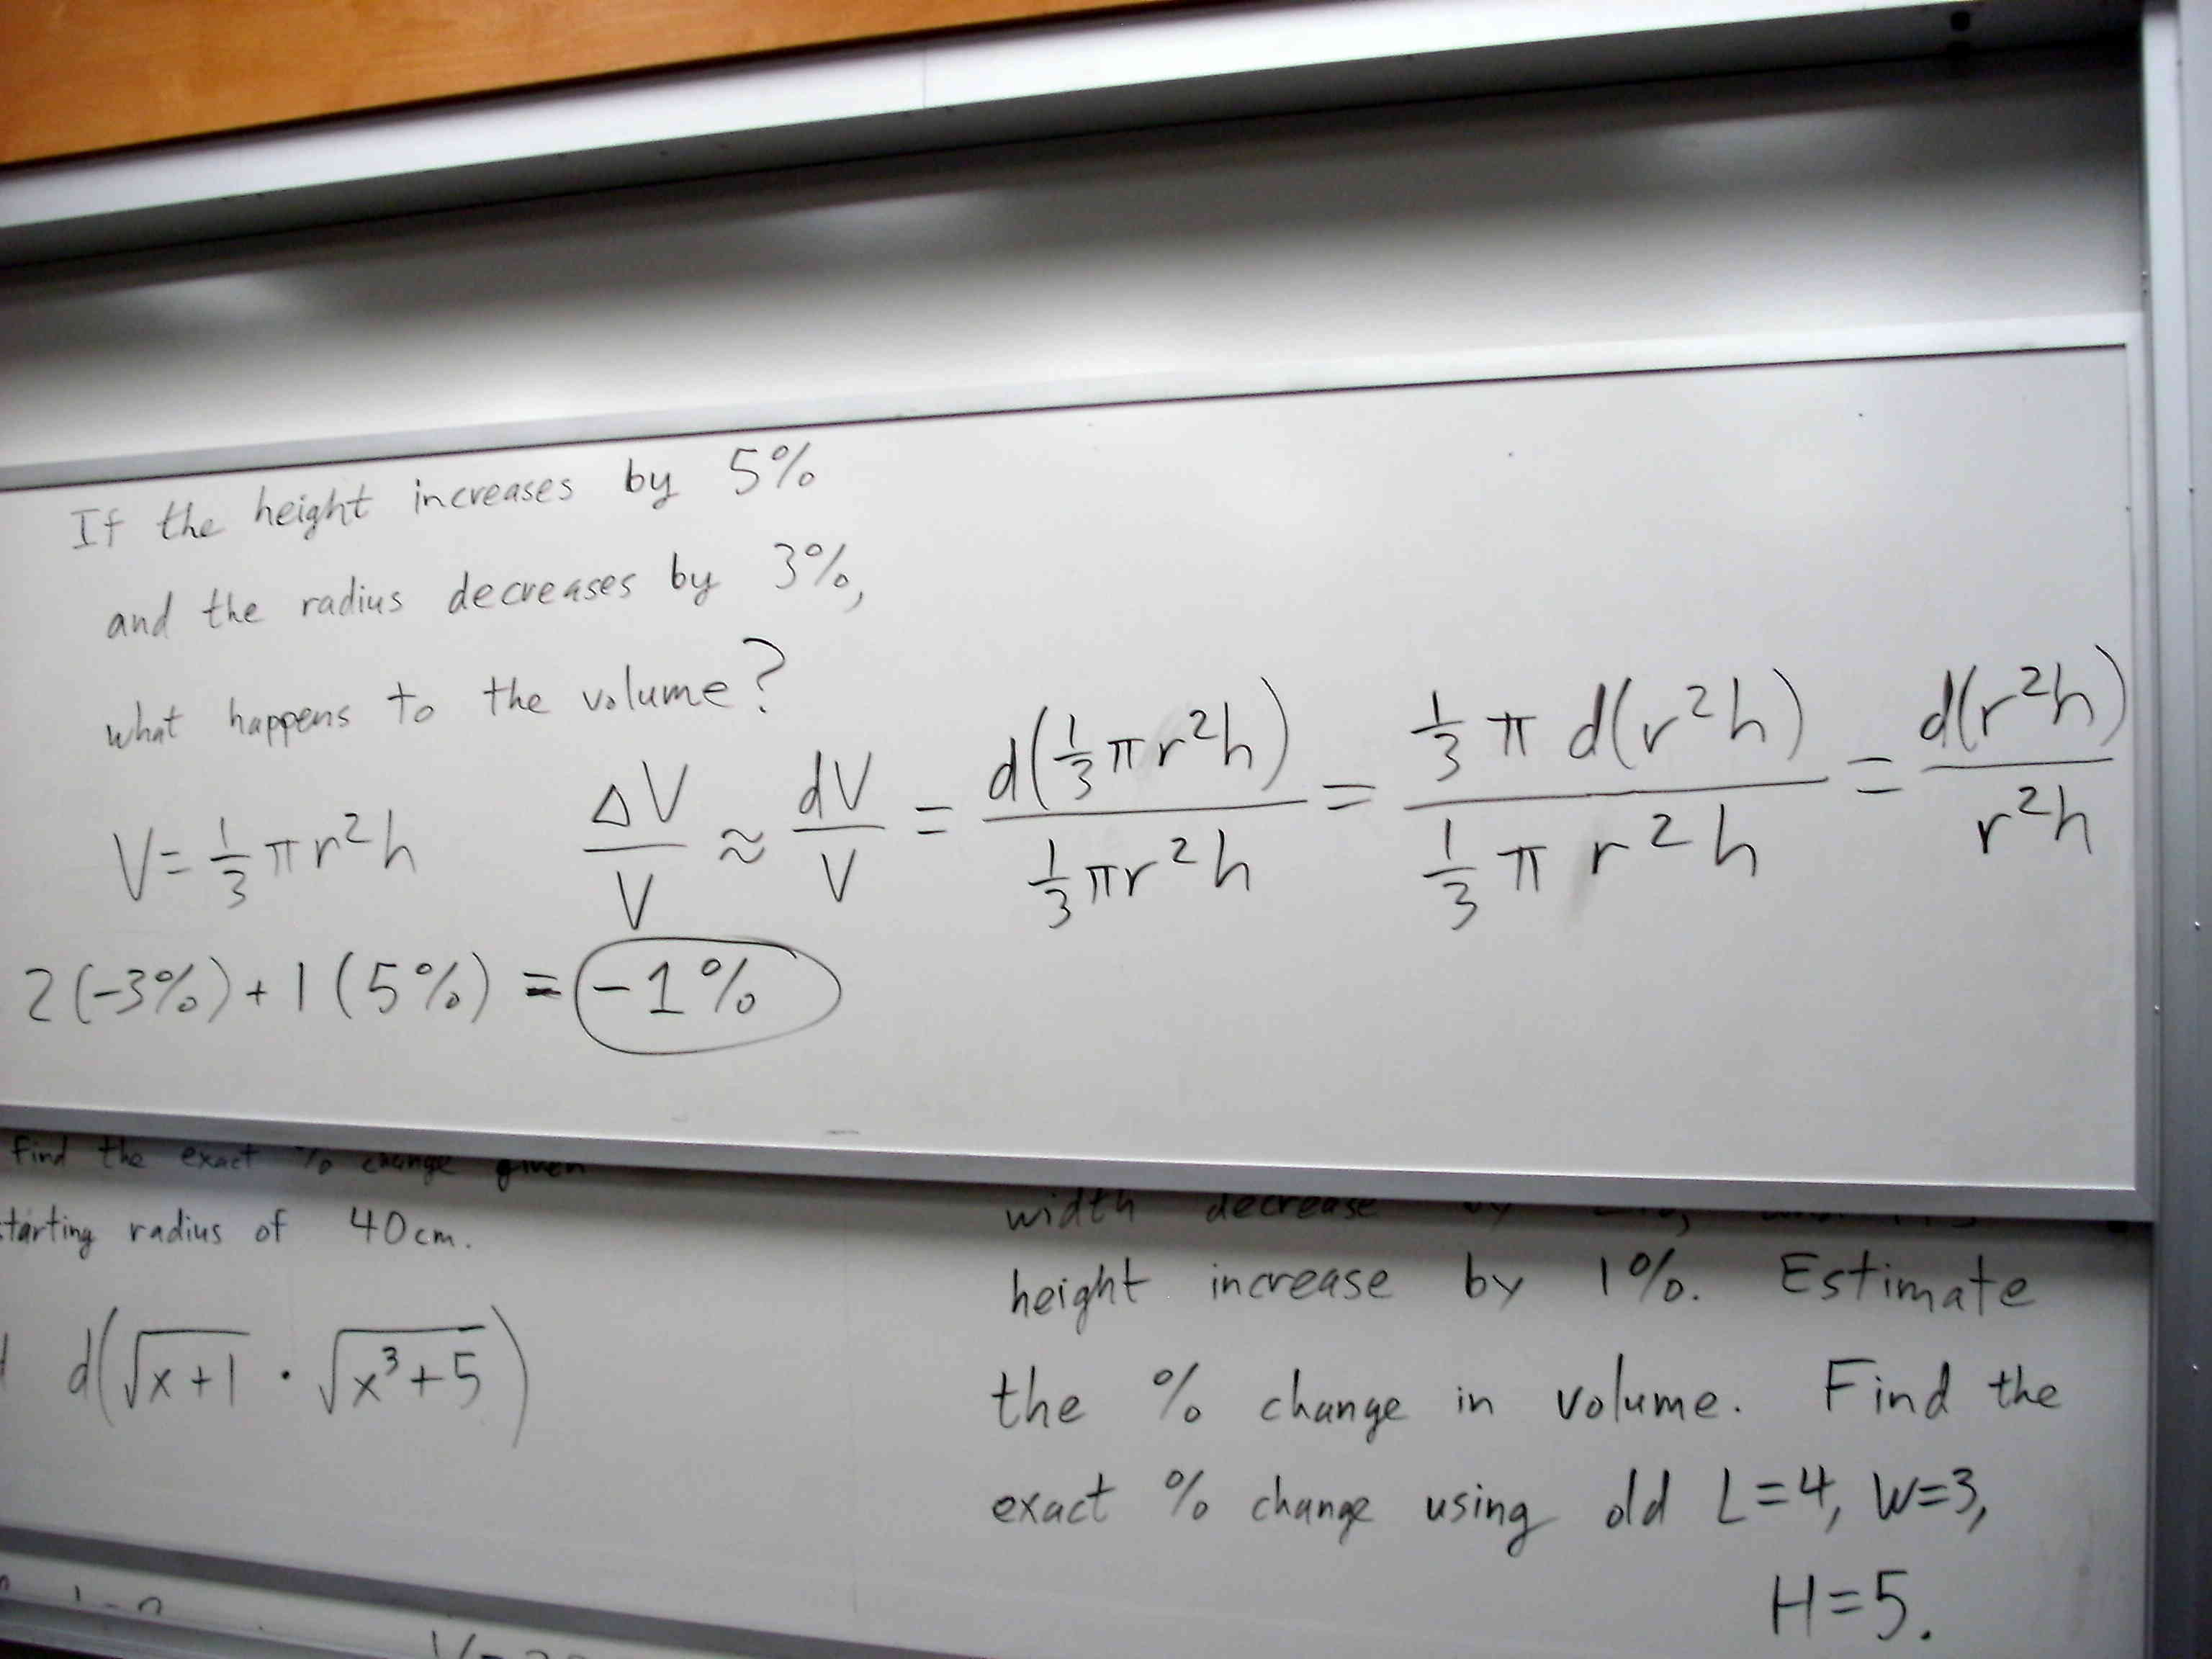 If the height increases by 5%
and the radius decreases by 3%,
what happens to the volume?
V = 1/3 πr²h   ΔV/V ≈ dV/V = d(1/3 πr²h) / (1/3 πr²h) = 1/3 π d(r²h) / (1/3 π r²h) = d(r²h) / r²h
2(-3%) + 1(5%) = -1%
Find the exact % change given
starting radius of 40cm.
d(√(x+1) · √(x³+5))
width decrease by
height increase by 1%. Estimate
the % change in volume. Find the
exact % change using old L=4, W=3,
H=5.